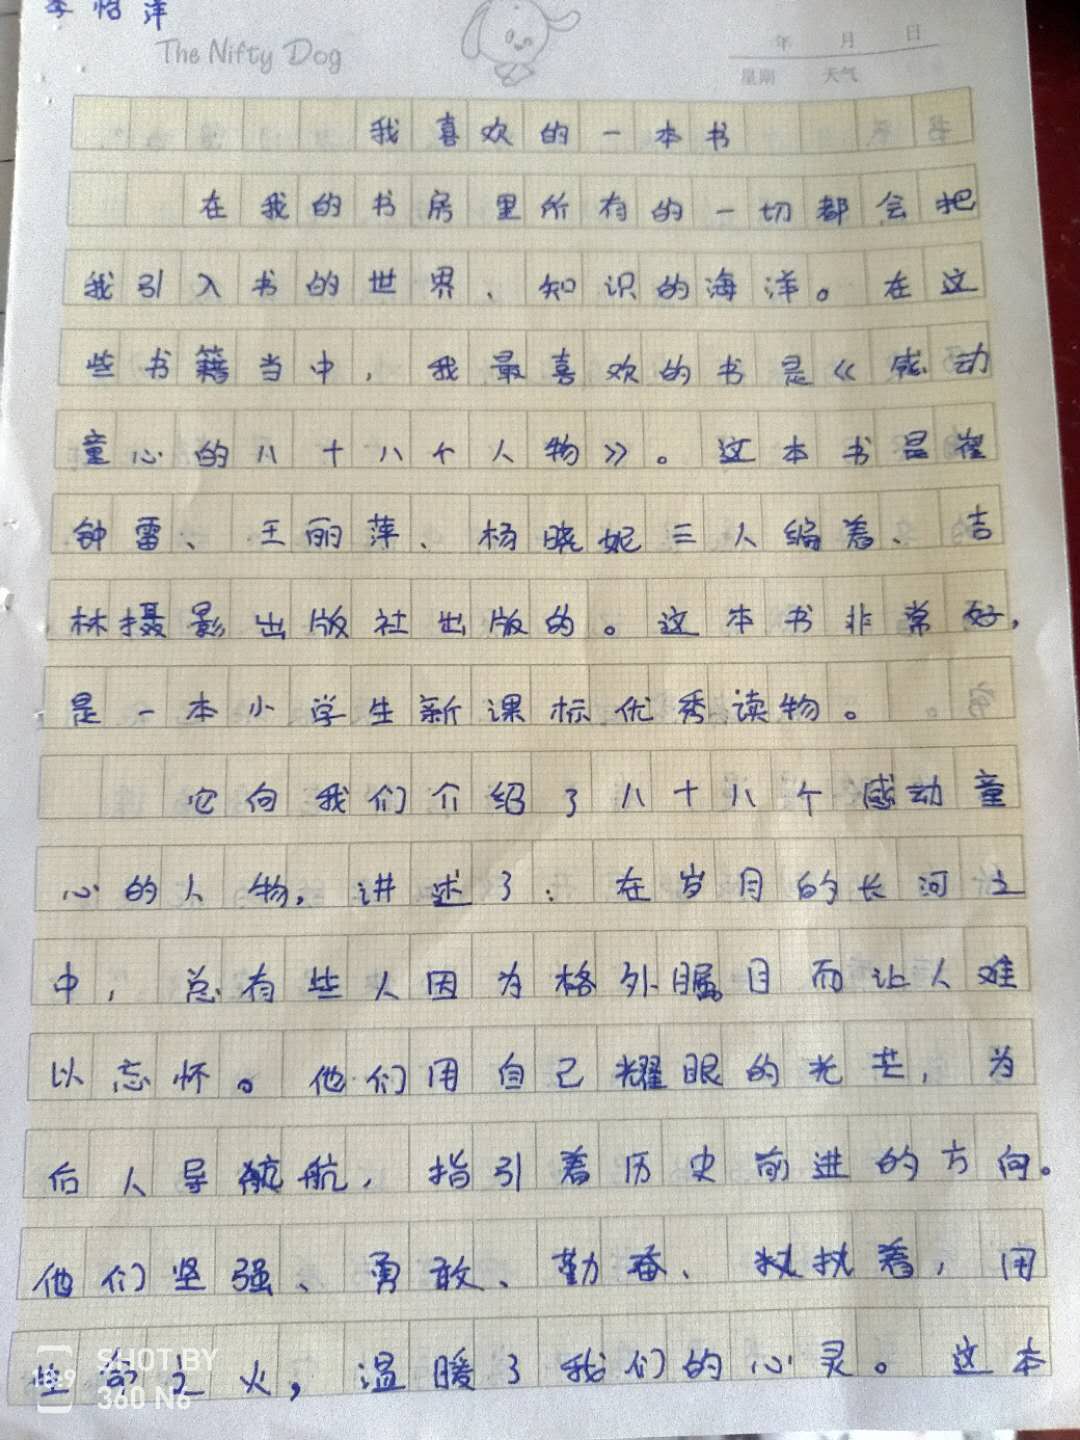 李怡洋
The Nifty Dog
年 月 日
星期 天气
我喜欢的一本书
在我的书房里所有的一切都会把
我引入书的世界、知识的海洋。在这
些书籍当中，我最喜欢的书是《感动
童心的八十八个人物》。这本书是崔
钟雷、王丽萍、杨晓妮三人编着、吉
林摄影出版社出版的。这本书非常好，
是一本小学生新课标优秀读物。
它向我们介绍了八十八个感动童
心的人物，讲述了：在岁月的长河之
中，总有些人因为格外瞩目而让人难
以忘怀。他们用自己耀眼的光芒，为
后人导航，指引着历史前进的方向。
他们坚强、勇敢、勤奋、执着，用
之火，温暖了我们的心灵。这本
SHOT BY
360 N6